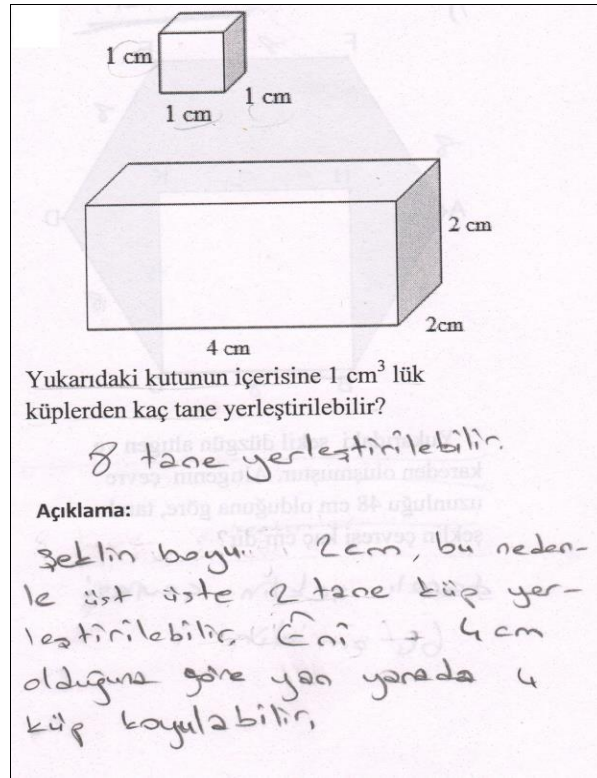 1 cm
1 cm
1 cm
2 cm
2cm
4 cm
Yukarıdaki kutunun içerisine 1 cm³ lük
küplerden kaç tane yerleştirilebilir?
8 tane yerleştirilebilir.
Açıklama:
Şeklin boyu 2cm, bu neden-
le üst üste 2 tane küp yer-
leştirilebilir. Eni 4 cm
olduğuna göre yan yanada 4
küp koyulabilir.